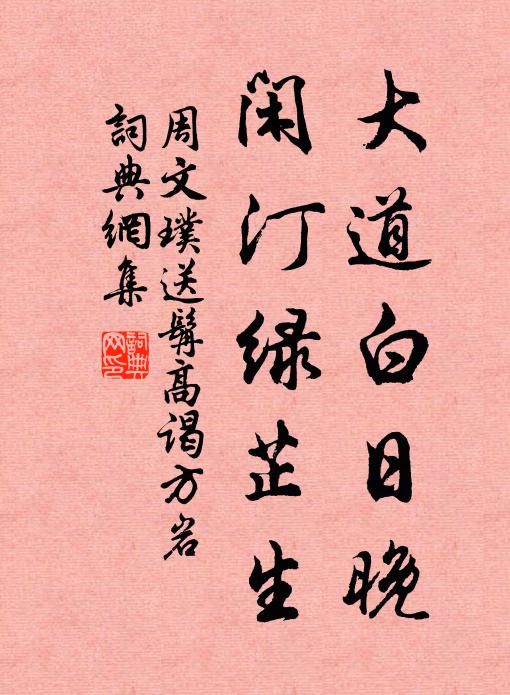 大道白日晚
闲汀绿芷生
周文璞送髯高谒方岩
詞典網集
詞典网印